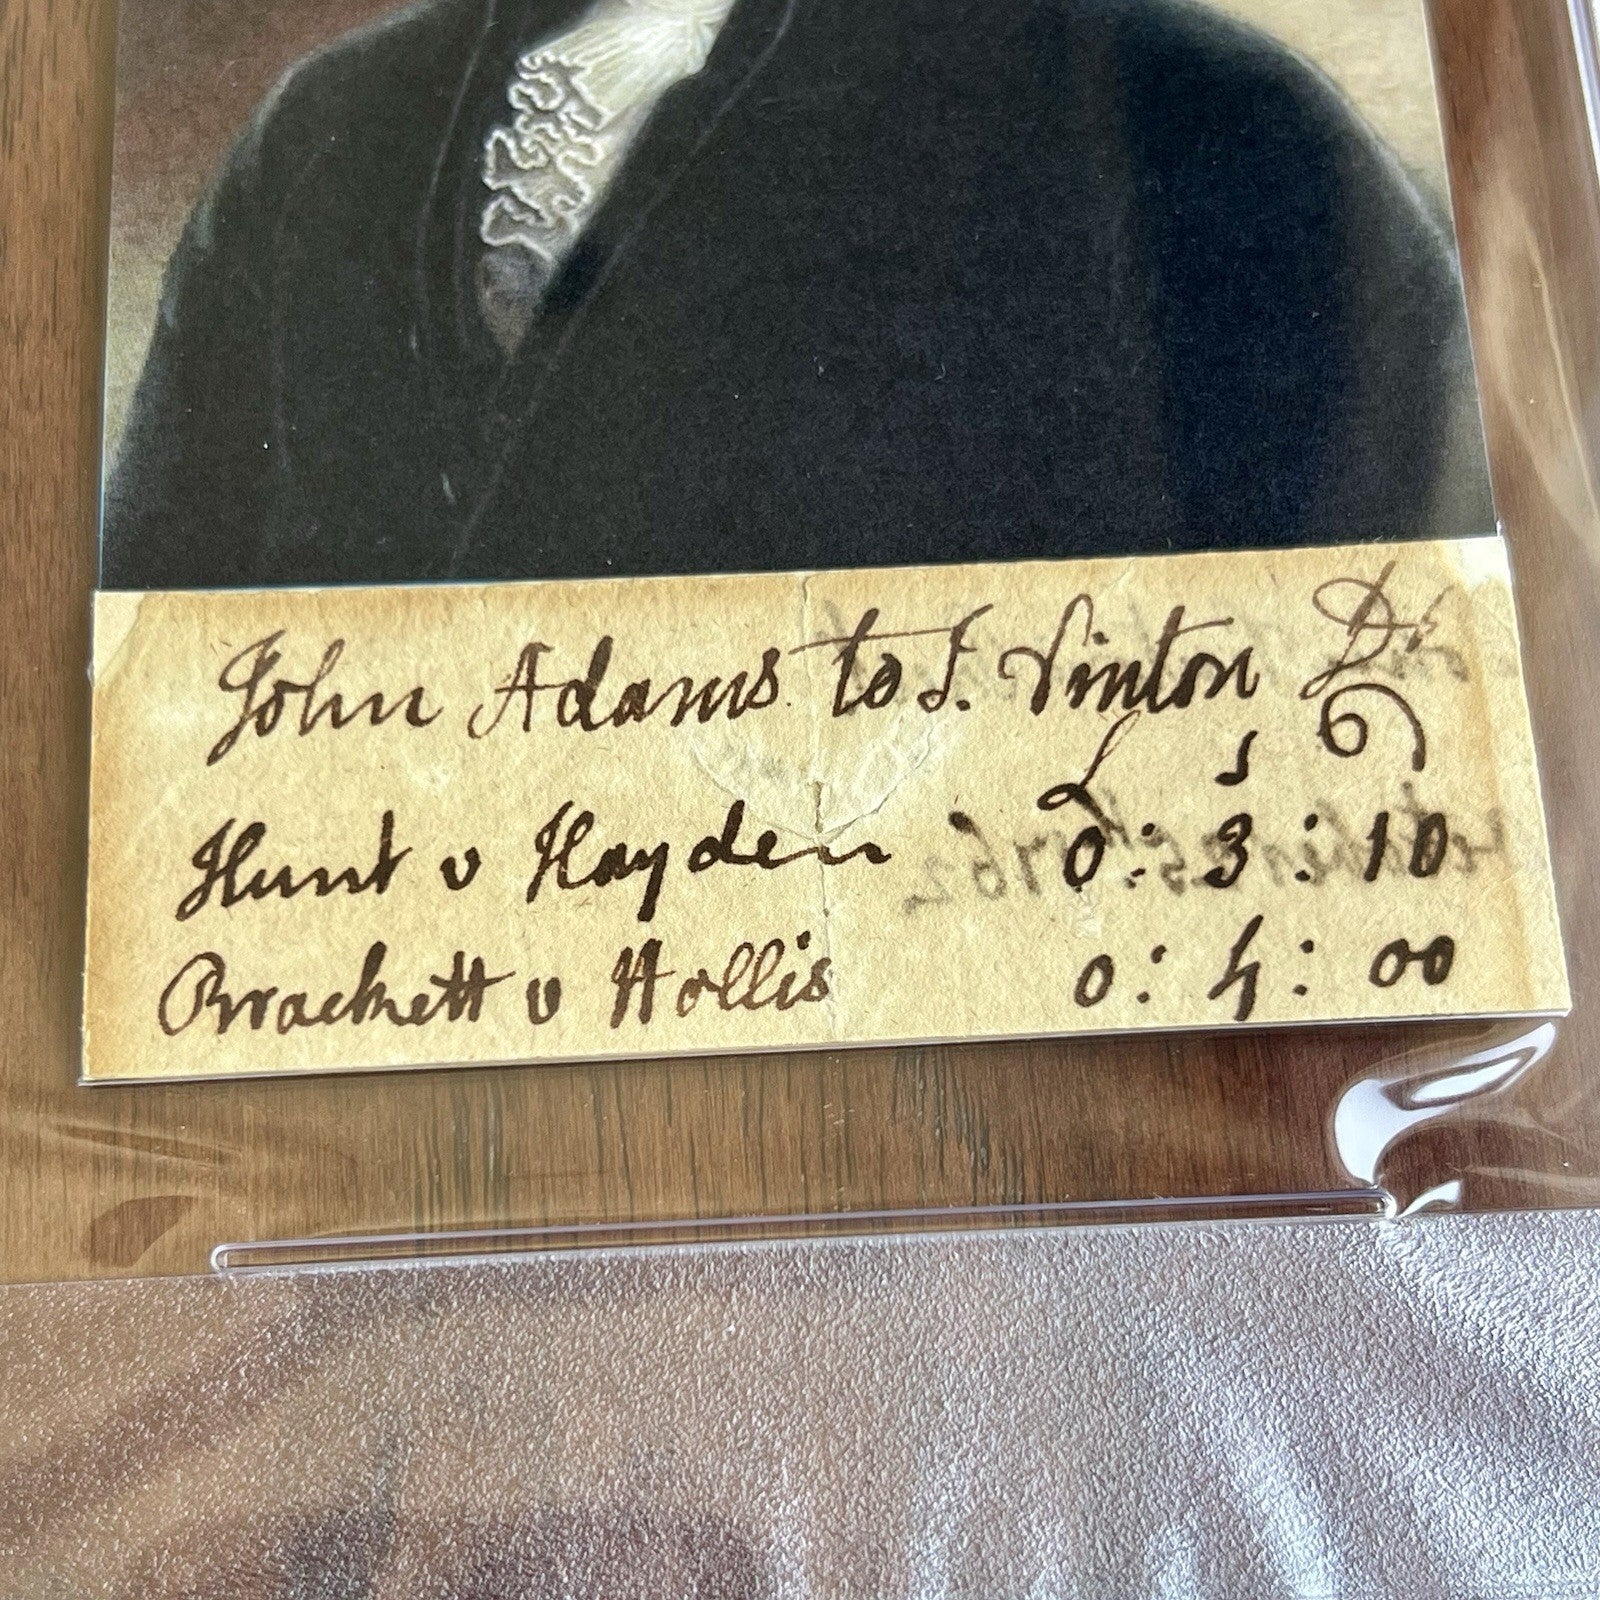 John Adams to J. Vinton Dr
L s d
Hunt v Hayden 0 : 3 : 10
Brackett v Hollis 0 : 4 : 00
1762